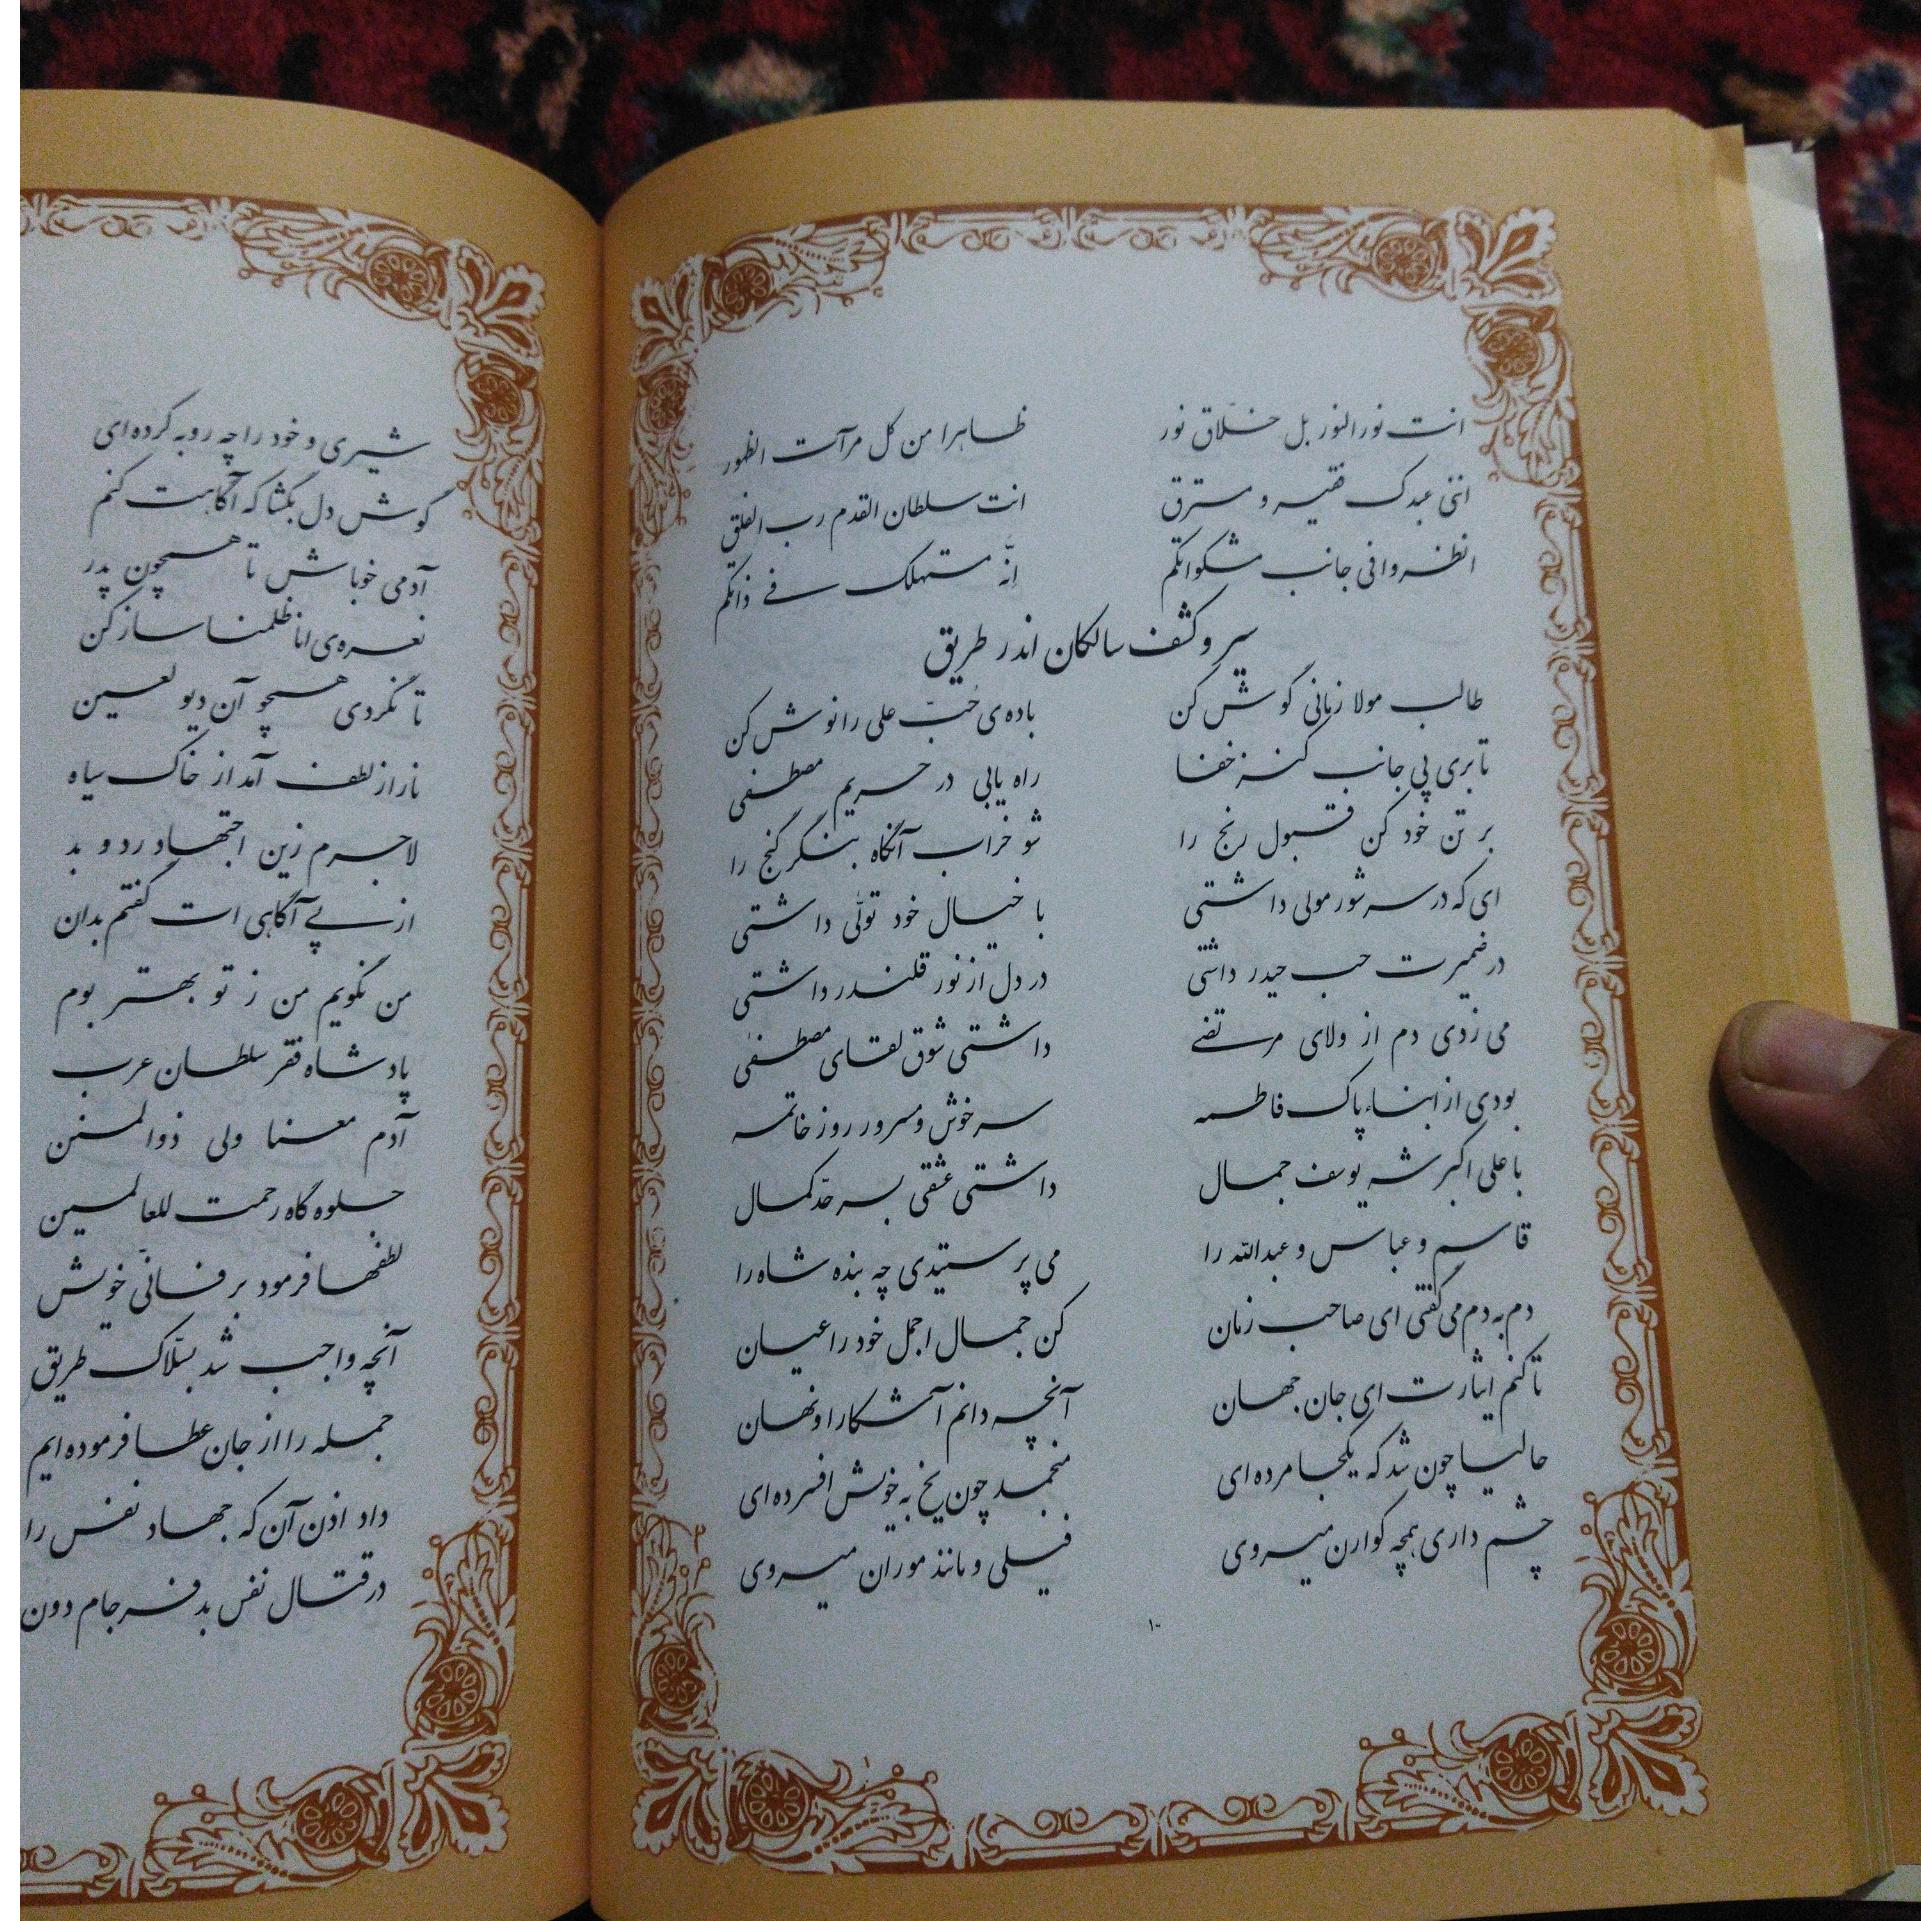 انت نورالنور بل خلّاق نور ظاهرا من کل مرآت الظهور
اننی عبدک فقیر و مسترق انت سلطان القدم رب الفلق
انظروا فی جانب مشکواتکم انّه مستهلک فی ذاتکم
سیر و کشف سالکان اندر طریق
طالب مولا زمانی گوش کن باده‌ی حُبّ علی را نوش کن
تا بری پی جانب کنز خفا راه یابی در حریم مصطفی
بر تن خود کن قبول رنج را شو خراب آنگاه بنگر گنج را
ای که در سر شور مولی داشتی با خیال خود تولّی داشتی
در ضمیرت حب حیدر داشتی در دل از نور قلندر داشتی
می زدی دم از ولای مرتضی داشتی شوق لقای مصطفی
بودی از ابناء پاک فاطمه سرخوش و مسرور روز خاتمه
با علی اکبر شه یوسف جمال داشتی عشقی بسر حدّ کمال
قاسم و عباس و عبدالله را می پرستیدی چه بنده شاه را
دم به دم می گفتی ای صاحب زمان کن جمال اجمل خود را عیان
تا کنم ایثارت ای جان جهان آنچه دانم آشکارا و نهان
حالیا چون شد که یکجا مرده ای منجمد چون یخ به خویش افسرده ای
چشم داری همچه کوارن میروی فیلی و مانند موران میروی
۱۰
شیری و خود را چه روبه کرده ای
گوش دل بگشا که آگاهت کنم
آدمی خو باش تا همچون پدر
نعره‌ی انا ظلمنا ساز کن
تا نگردی همچو آن دیو لعین
نار از لطف آمد از خاک سیاه
لاجرم زین اجتهاد رد و بد
از پی آگاهی ات گفتم بدان
من نگویم من ز تو بهتر بوم
پادشاه فقر سلطان عرب
آدم معنا ولی ذوالمنن
جلوه گاه رحمت للعالمین
لطفها فرمود بر فانی خویش
آنچه واجب شد بسلّاک طریق
جمله را از جان عطا فرموده ایم
داد اذن آن که جهاد نفس را
در قتال نفس بد فرجام دون